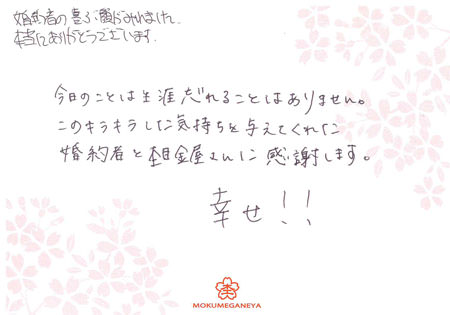 婚約者の喜ぶ顔がみれました。
本当にありがとうございます。
今日のことは生涯忘れることはありません。
このキラキラした気持ちを与えてくれた
婚約者と杢目金屋さんに感謝します。
幸せ！！
MOKUMEGANEYA